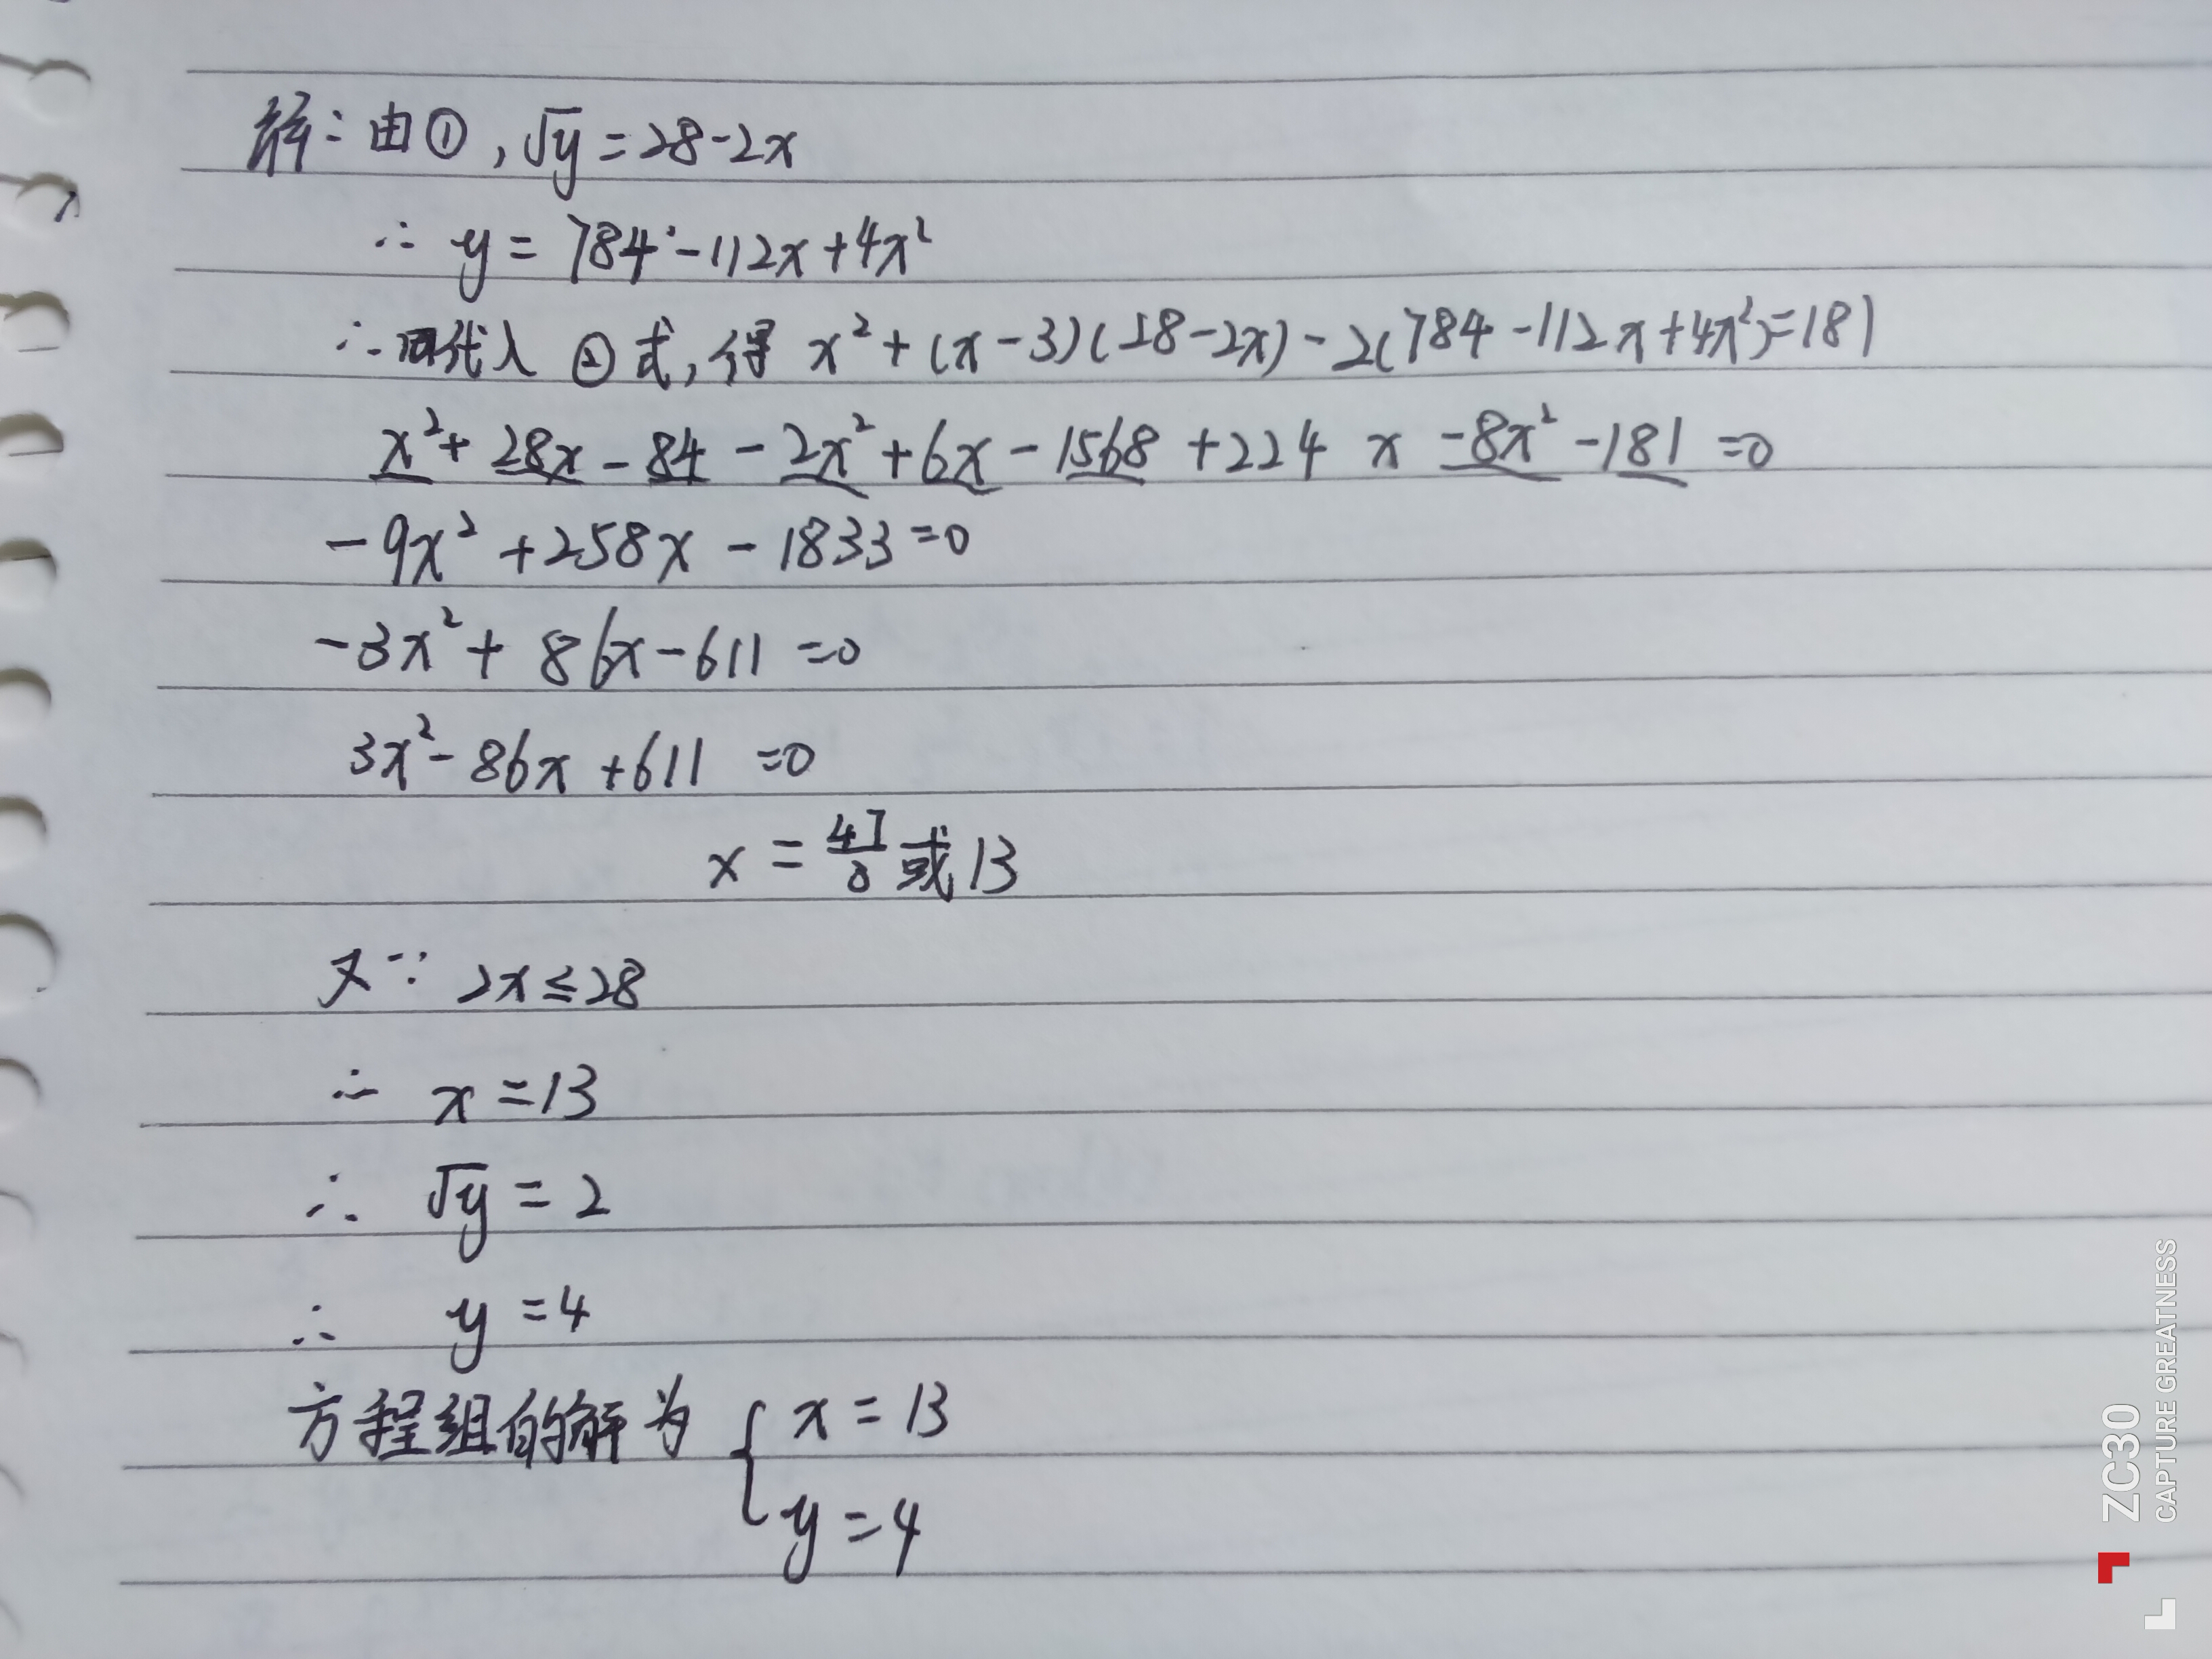 解：由①，√y = 28-2x
∴ y = 784-112x+4x²
∴代入②式，得 x²+(x-3)(28-2x)-2(784-112x+4x²)=181
x²+28x-84-2x²+6x-1568+224x-8x²-181=0
-9x²+258x-1833=0
-3x²+86x-611=0
3x²-86x+611=0
x = 47/3 或 13
又∵ 2x≤28
∴ x=13
∴ √y = 2
∴ y=4
方程组的解为 { x=13
y=4
ZC30
CAPTURE GREATNESS